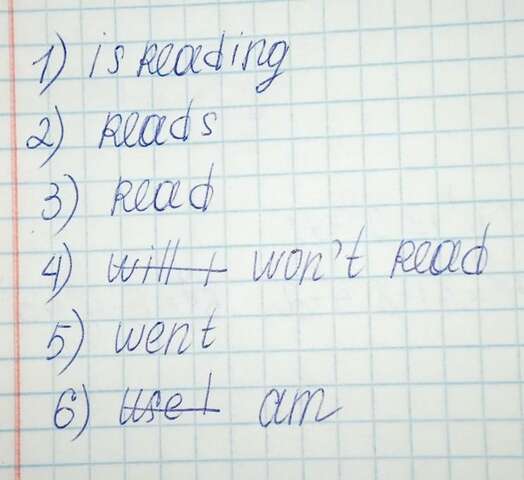 1) is reading
2) reads
3) read
4) won't read
5) went
6) am